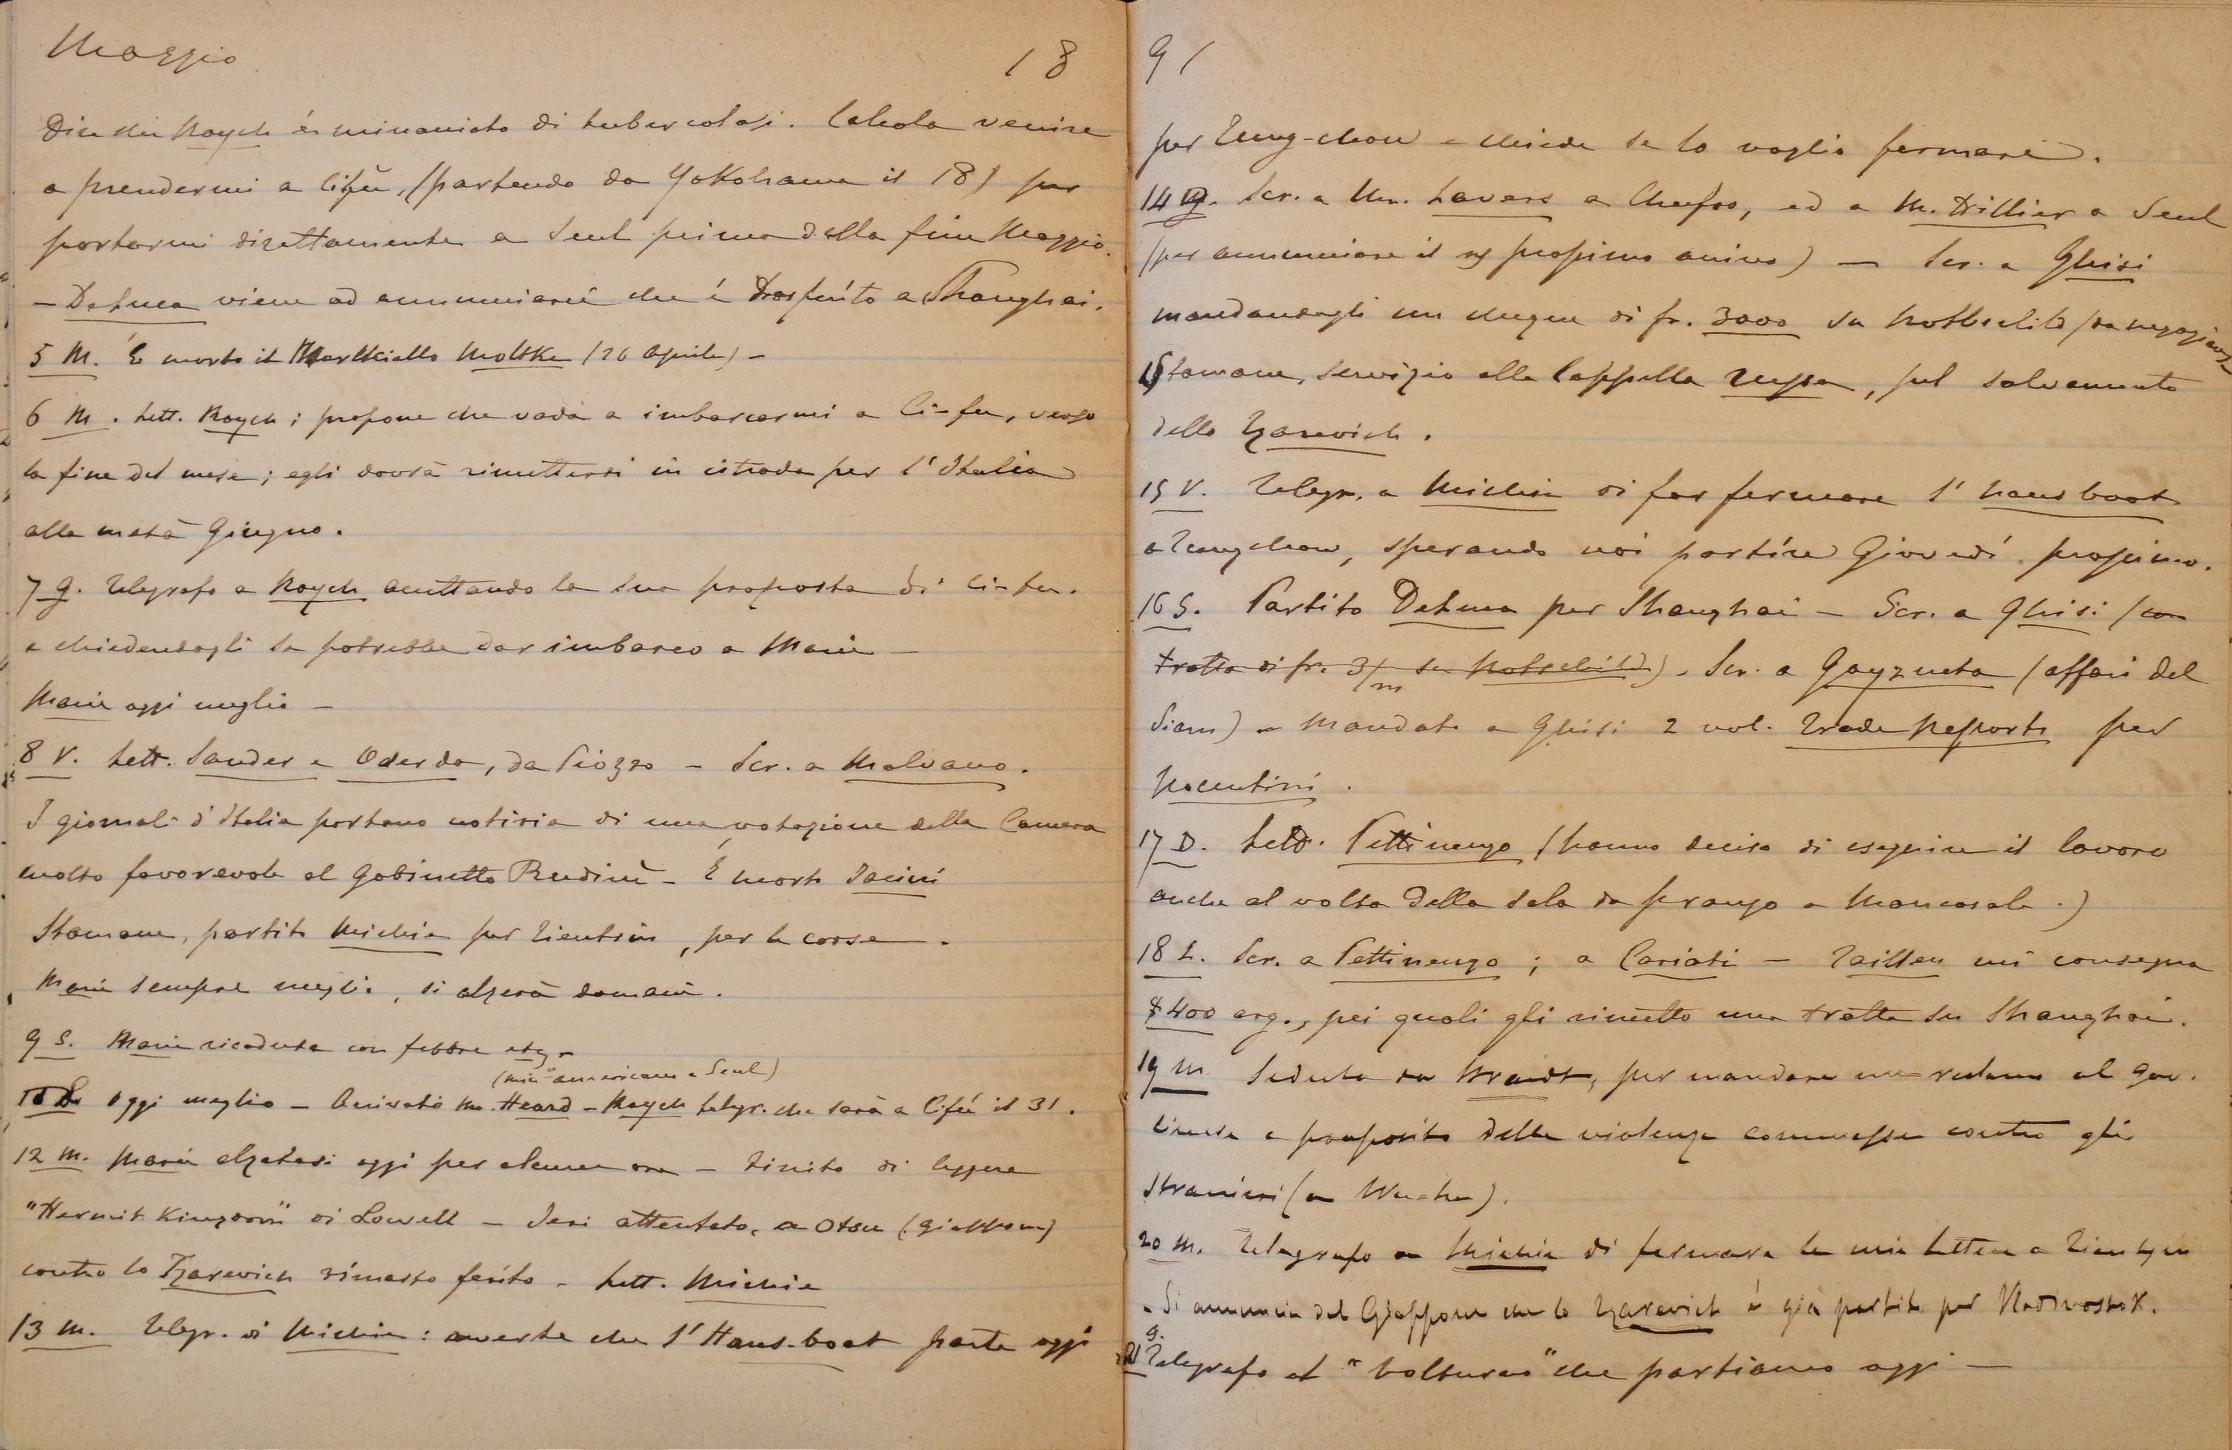 Maggio 18
Dice che Roych è minacciato di tubercolosi. Calcola venire
a prendermi a Cifù, (partendo da Yokohama il 18) per
portarmi direttamente a Seul prima della fine Maggio.
– DeLuca viene ad annunciarci che è trasferito a Shanghai.
5 M. È morto il Marksciallo Moltke (26 Aprile) –
6 M. Lett. Roych; propone che vada a imbarcarmi a Ci-fu, verso
la fine del mese; egli dovrà rimettersi in istrada per l'Italia
alla metà Giugno.
7 G. Telegrafo a Roych accettando la sua proposta di Ci-fu.
e chiedendogli se potrebbe dar imbarco a Marie –
Marie oggi meglio –
8 V. Lett. Sander e Oderda, da Piozzo – Scr. a Malvano.
I giornali d'Italia portano notizia di una votazione della Camera
molto favorevole al Gabinetto Rudinì – È morto Jacini
Stamane, partito Michie per Tientsin, per le corse –.
Marie sempre meglio, si alzerà domani.
9 S. Marie ricaduta con febbre etz –
(minº americano a Seul)
10 D. Oggi meglio – Arrivato Mr. Heard – Roych telegr. che sarà a Cifù il 31.
12 M. Marie alzatasi oggi per alcune ore – Finito di leggere
"Hermit Kingdom" di Lowell – Ieri attentato, a Otsu (Giappone)
contro lo Tzarevich rimasto ferito – Lett. Michie
13 M. Telegr. di Michie: avverte che l'Haus-boat parte oggi
91
per Tung-chow e chiede se lo voglio fermare.
14 G. Scr. a Mr. Lavers a Chefoo, ed a M. Hillier a Seul
(per annunciare il prossimo arrivo) – Scr. a Ghisi
mandandogli un cheque di fr. 3000 su Rothschild (da negoziare)
Stamane, servizio alla Cappella russa, pel salvamento
dello Tzarevich.
15 V. Telegr. a Michie di far fermare l'haus boat
a Tungchow, sperando noi partire Giovedì prossimo.
16 S. Partito DeLuca per Shanghai – Scr. a Ghisi (con
tratta di fr. 3/m su Rothschild) – Scr. a Gayzueta (affari del
Siam) – Mandato a Ghisi 2 vol. Trade Reports per
Nocentini.
17 D. Lett. Pettinengo (hanno deciso di eseguire il lavoro
anche al volto della sala da pranzo a Moncasale.)
18 L. Scr. a Pettinengo; a Cariati – Taillen mi consegna
$ 400 arg., pei quali gli rimetto una tratta su Shanghai.
19 M Seduta da Brandt, per mandare un reclamo al Gov.
Cinese a proposito delle violenze commesse contro gli
stranieri (a Wu-hu).
20 M. Telegrafo a Michie di fermare le mie lettere a Tientsin
– Si annuncia dal Giappone che lo Tzarevich è già partito per Vladivostok.
21 G. Telegrafo al "Volturno" che partiamo oggi –